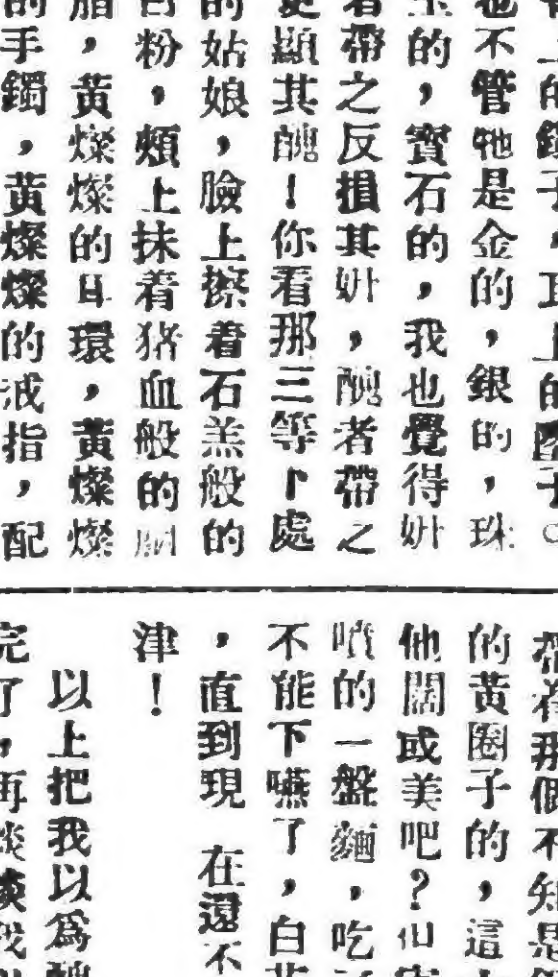 上的鐲子，耳上的墜子。
也不管牠是金的，銀的，珠
玉的，寶石的，我也覺得姸
者帶之反損其姸，醜者帶之
更顯其醜！你看那三等下處
的姑娘，臉上擦着石羔般的
白粉，頰上抹着猪血般的胭
脂，黃燦燦的耳環，黃燦燦
的手鐲，黃燦燦的戒指，配
帶着那個不知是
的黃圈子的，這
他闊或美吧？但
噴的一盤麵，吃
不能下嚥了，白花
，直到現 在還不
津！
以上把我以爲醜
完了，再談談我